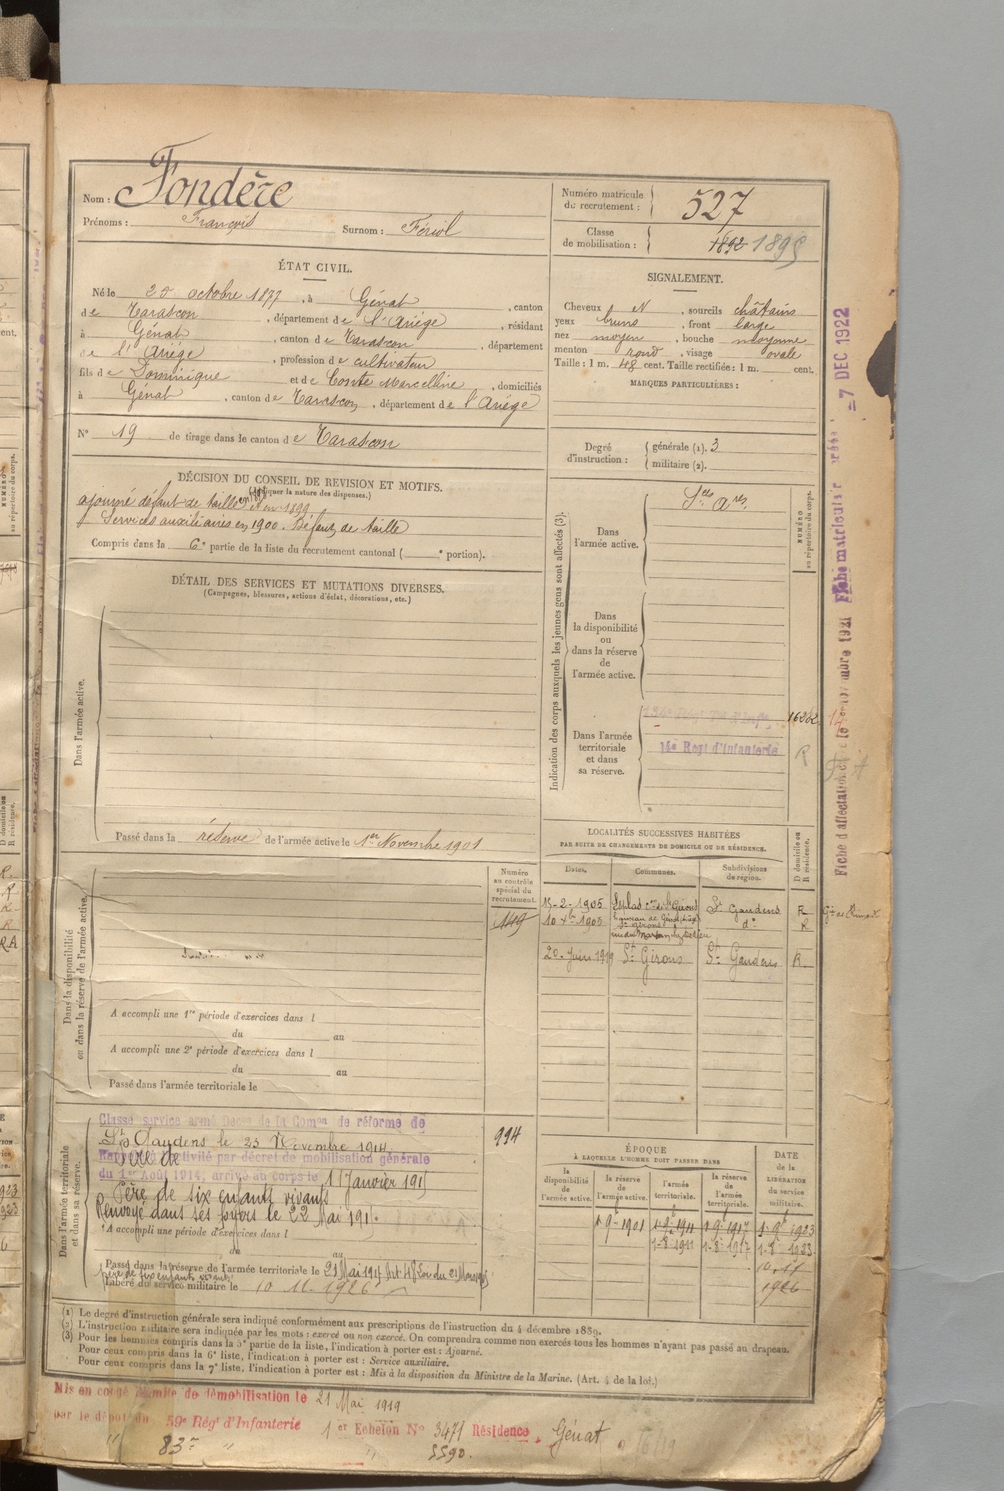 Nom : Fondère
Prénoms : François Surnom : Fériol
Numéro matricule du recrutement : 527
Classe de mobilisation : 1892 1895
ÉTAT CIVIL.
Né le 25 octobre 1877, à Génat, canton
de Tarascon, département de l'Ariége, résidant
à Génat, canton de Tarascon, département
de l'Ariége, profession de cultivateur
fils de Dominique et de Conte Marcelline, domiciliés
à Génat, canton de Tarascon, département de l'Ariége
N° 19 de tirage dans le canton de Tarascon
SIGNALEMENT.
Cheveux N, sourcils châtains
yeux bruns, front large
nez moyen, bouche moyenne
menton rond, visage ovale
Taille : 1 m. 48 cent. Taille rectifiée : 1 m. cent.
MARQUES PARTICULIÈRES :
Degré d'instruction : générale (1). 3
militaire (2).
DÉCISION DU CONSEIL DE REVISION ET MOTIFS.
(Indiquer la nature des dispenses.)
ajourné défaut de taille en 1898 et en 1899
Services auxiliaires en 1900. Défaut de taille
Compris dans la 6e partie de la liste du recrutement cantonal ( e portion).
DÉTAIL DES SERVICES ET MUTATIONS DIVERSES.
(Campagnes, blessures, actions d'éclat, décorations, etc.)
Dans l'armée active.
Passé dans la réserve de l'armée active le 1er Novembre 1901
Indication des corps auxquels les jeunes gens sont affectés (3).
NUMÉRO au répertoire du corps.
Dans l'armée active.
Sces Ares
Dans la disponibilité ou dans la réserve de l'armée active.
Dans l'armée territoriale et dans sa réserve.
16202
14e Regt d'Infanterie R
LOCALITÉS SUCCESSIVES HABITÉES
PAR SUITE DE CHANGEMENTS DE DOMICILE OU DE RÉSIDENCE.
D domicile ou R résidence.
Dates. Communes. Subdivisions de région.
15-2-1905 St Girons St Gaudens R
10 Xbre 1905 do R
20 Juin 1919 St Girons St Gaudens R
Numéro au contrôle spécial du recrutement.
149
Dans la disponibilité ou dans la réserve de l'armée active.
A accompli une 1re période d'exercices dans l
du au
A accompli une 2e période d'exercices dans l
du au
Passé dans l'armée territoriale le
Dans l'armée territoriale et dans sa réserve.
994
Classé service armé Décon de la Comon de réforme de
St Gaudens le 23 Novembre 1914.
Rappelé à l'activité par décret de mobilisation générale
du 1er Août 1914, arrivé au corps le 17 Janvier 1915
Père de six enfants vivants
Renvoyé dans ses foyers le 22 Mai 191
A accompli une période d'exercices dans l
du au
Passé dans la réserve de l'armée territoriale le
père de six enfants vivants
Libéré du service militaire le 10 11. 1926
ÉPOQUE
À LAQUELLE L'HOMME DOIT PASSER DANS
la disponibilité de l'armée active. la réserve de l'armée active. l'armée territoriale. la réserve de l'armée territoriale.
DATE de la LIBÉRATION du service militaire.
1-9bre 1901 1-9e 1911 1-9e 1917 1-9bre 1923
1-8e 1911 1-8e 1917 1-8e 1923
1926
(1) Le degré d'instruction générale sera indiqué conformément aux prescriptions de l'instruction du 4 décembre 1889.
(2) L'instruction militaire sera indiquée par les mots : exercé ou non exercé. On comprendra comme non exercés tous les hommes n'ayant pas passé au drapeau.
(3) Pour les hommes compris dans la 5e partie de la liste, l'indication à porter est : Ajourné.
Pour ceux compris dans la 6e liste, l'indication à porter est : Service auxiliaire.
Pour ceux compris dans la 7e liste, l'indication à porter est : Mis à la disposition du Ministre de la Marine. (Art. 4 de la loi.)
Mis en congé illimité de démobilisation le 21 Mai 1919
par le dépot du 59e Régt d'Infanterie 1er Echelon No 3471 Résidence, Génat
" 83e " " 5590.
-7 DEC 1922